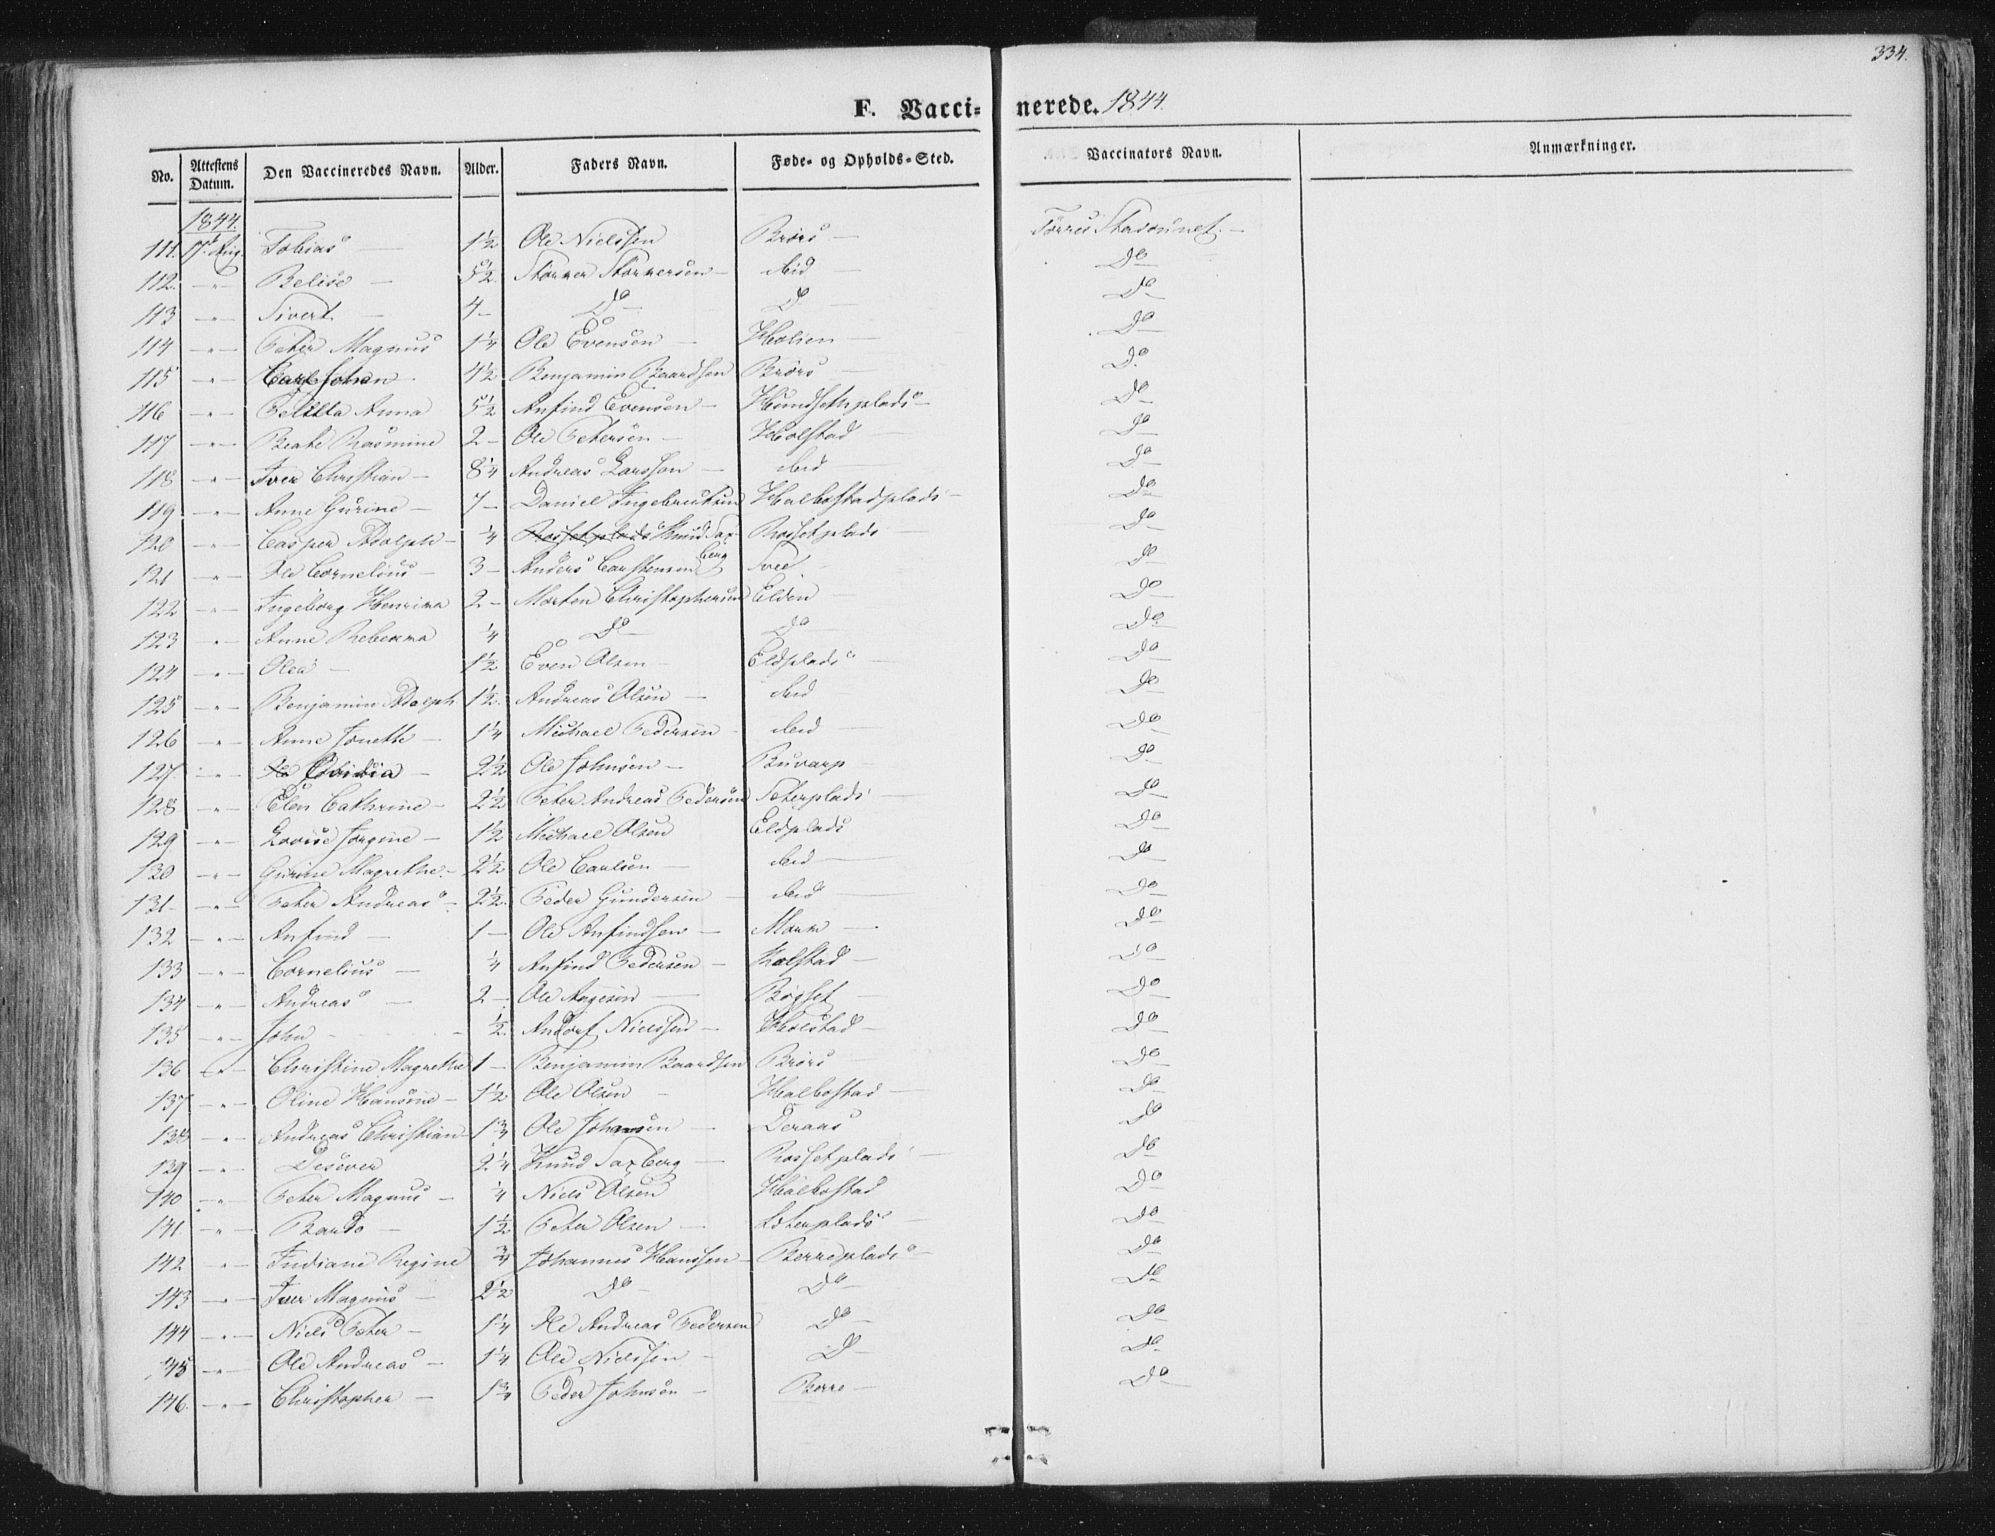 334.
F. Vaccinerede. 1844.
No. Attestens Datum. Den Vaccineredes Navn. Alder. Faders Navn. Føde- og Opholds-Sted. Vaccinators Navn. Anmærkninger.
1844.
111. 17de Aug. Tobias — 1½ Ole Nielssen Brørs —
112. —"— Belise — 5½ Størker Størkersen — ibid — Do
113 —"— Sivert — 4 — Do — D — Do
114 —"— Peter Magnus 1¼ Ole Evensen — Holien — Do
115 —"— Carl Johan 4½ Benjamin Baardsen Brørs — Do
116 —"— Anna 5½ Anfind Evensen — Hundsethplads — Do
117 —"— Beate Rasmine 2 — Ole Petersen — Holstad — Do
118 —"— Iver Christian — 8¼ Andreas Larssen — ibid Do
119 —"— Anne Gurine — 7 — Daniel Ingebrigtsen Halbostadplads — Do
120 —"— Casper Adolph — ¼ Knud Saxberg Rossetplads — Do
121 —"— Ole Cornelius — 3 — Anders Carstensen Do
122 —"— Ingeborg Henrikka 2 — Morten Christophersen Elden — Do
123 —"— Anne Rebekka ¼ Do — Do — Do
124 —"— Olea — 1½ Even Olsen — Eldplads — Do
125 —"— Benjamin Adolph 1½ Andreas Olsen — ibid Do
126 —"— Anne Jonette — 1¼ Michael Pedersen — ibid — Do
127 —"— 2½ Ole Johnsen — Buvarp — Do
128 —"— Elen Cathrine — 2½ Peter Andreas Pedersen Do
129 —"— Lovise Jørgine — 1½ Michael Olsen Eldplads Do
130 —"— Gurine Magrethe — 2½ Ole Carlsen — ibid — Do
131 —"— Peter Andreas — 2½ Peder Gundersen — ibid — Do
132 —"— Anfind — 1 — Ole Anfindsen — Do
133 —"— Cornelius — ¼ Anfind Pedersen — Holstad — Do
134 —"— Andreas — 2 — Ole Do
135 —"— John — ½ Nielssen — Holstad — Do
136 —"— Christine Magrethe 1 — Benjamin Baardsen Brørs — Do
137 —"— Oline Hansine — 1½ Ole Olsen — Halbostad — Do
138 —"— Andreas Christian 1¾ Ole Johansen — Deraas — Do
139 —"— Desever 2¼ Knud Saxberg — Rossetplads — Do
140 —"— Peter Magnus — ¼ Niels Olsen Halbostad Do
141 —"— 1½ Peter Olsen — Do
142 —"— Indiane Regine ¾ Johannes Hanssen — Berreplads — Do
143 —"— Iver Magnus — 2½ Do — Do — Do
144 —"— Niels Peter — 1¼ Ole Andreas Pedersen Do — Do
145 —"— Ole Andreas — 1¼ Ole Nielssen — D — Do
146. —"— Christopher — 1¾ Peder Johnsen — Berre — Do